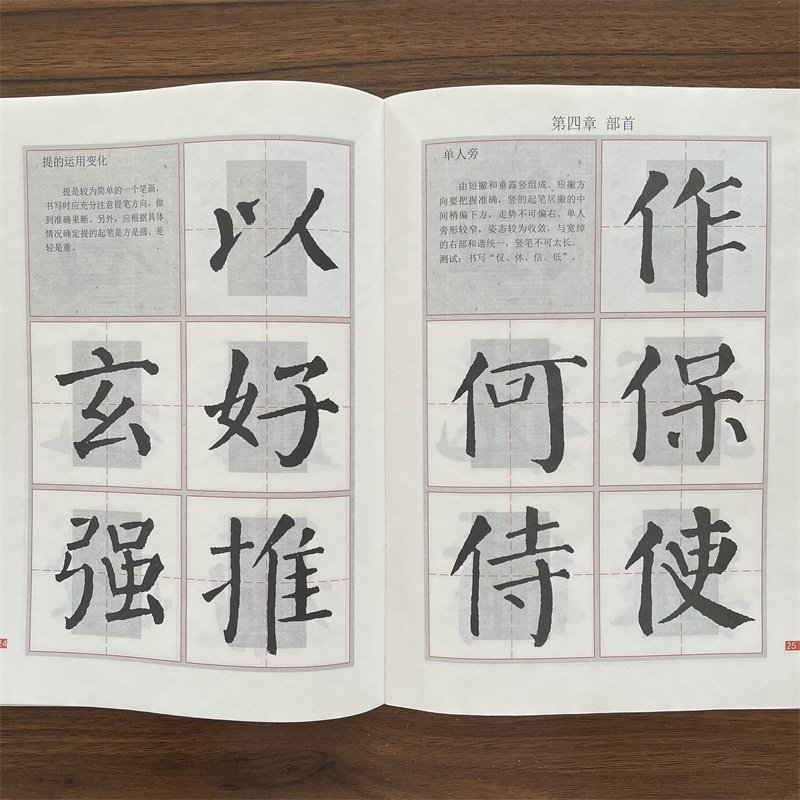 提的运用变化
提是较为简单的一个笔画,
书写时应充分注意提笔方向,做
到准确果断。另外,应根据具体
情况确定提的起笔是方是圆、是
轻是重。
以
玄 好
强 推
24
第四章 部首
单人旁
由短撇和垂露竖组成。短撇方
向要把握准确,竖的起笔居撇的中
间稍偏下方,走势不可偏右。单人
旁形较窄,姿态较为收敛,与宽绰
的右部和谐统一,竖笔不可太长。
测试:书写“仪、休、信、低”。
作
何 保
侍 使
25